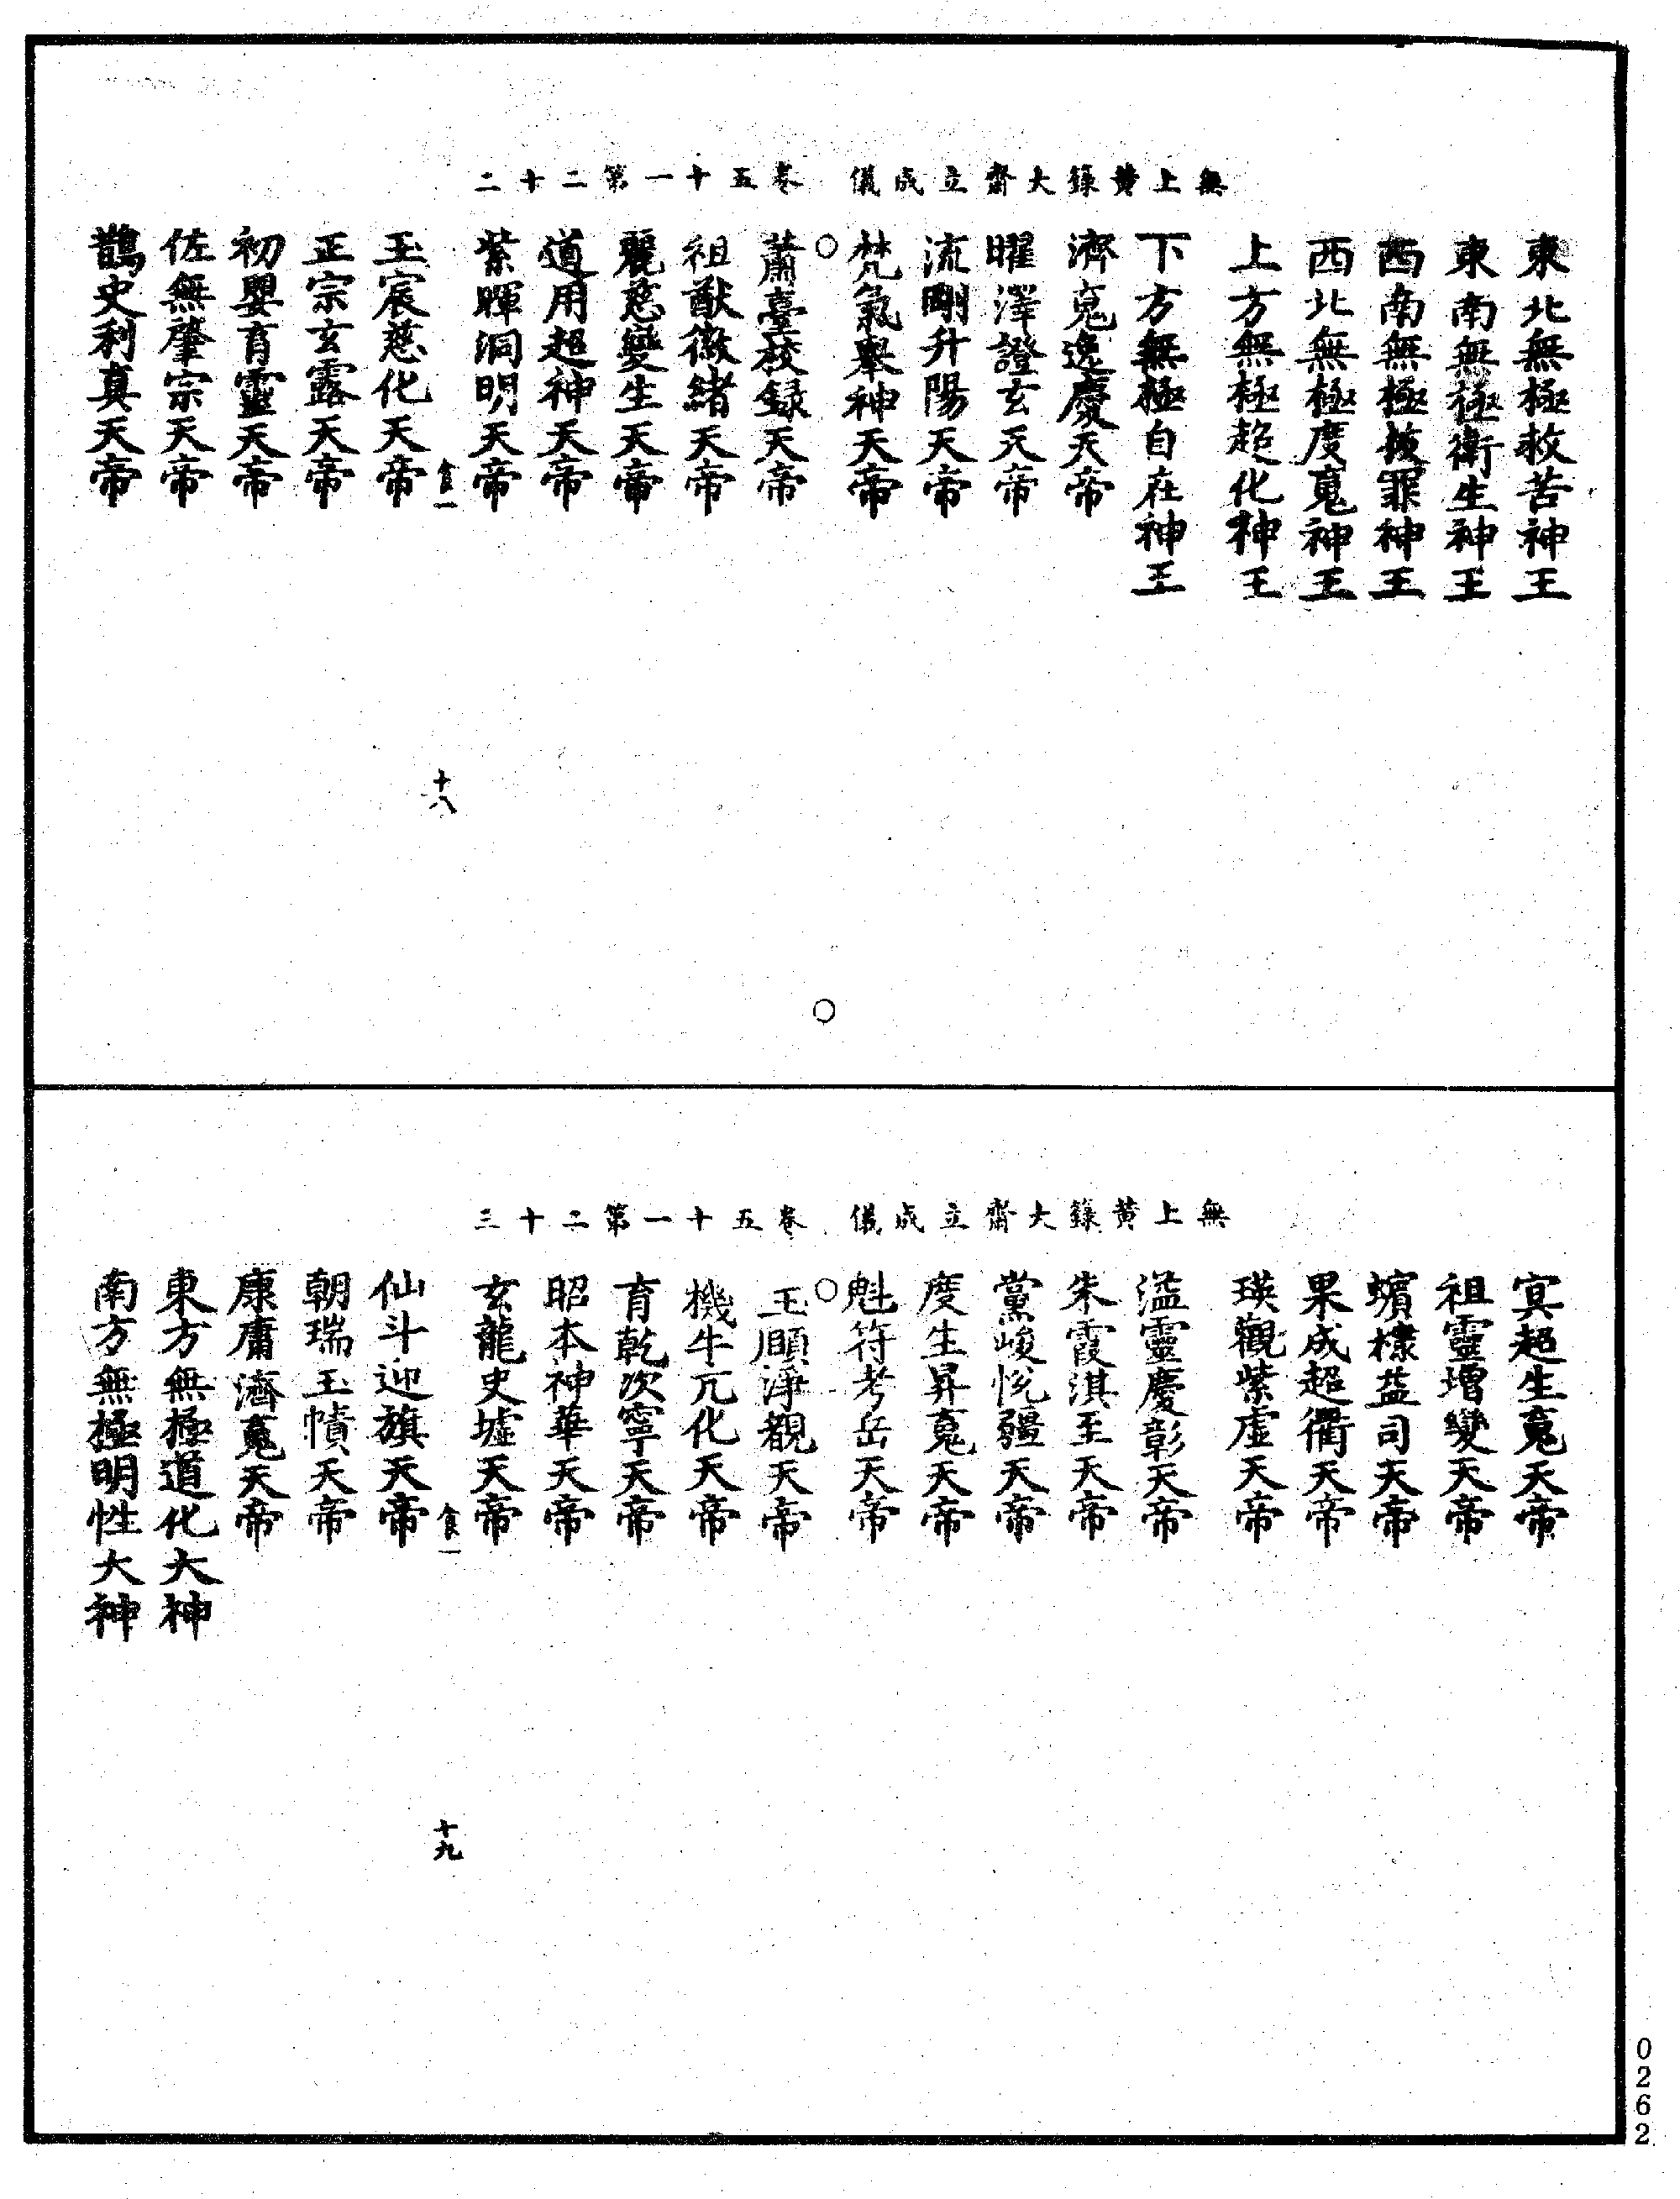 無上黃籙大齋立成儀　卷五十一第二十二
東北無極救苦神王
東南無極衛生神王
西南無極拔罪神王
西北無極度䰟神王
上方無極超化神王
下方無極自在神王
濟䰟逸慶天帝
曜澤證玄天帝
流剛升陽天帝
梵氣舉神天帝
○
蕭臺校錄天帝
祖猷徽緒天帝
麗慈變生天帝
道用超神天帝
紫暉洞明天帝
食一
十八
玉宸慈化天帝
正宗玄露天帝
初嬰育靈天帝
佐無肇宗天帝
鵲史利真天帝
○
無上黃籙大齋立成儀　卷五十一第二十三
㝠超生䰟天帝
祖靈增變天帝
蠙樣益司天帝
果成超衢天帝
瑛觀紫虛天帝
溢靈慶彰天帝
朱霞淇至天帝
黨峻悅疆天帝
度生昇䰟天帝
魁符考岳天帝
○
玉願淨觀天帝
機牛兀化天帝
育乾次寧天帝
昭本神華天帝
玄龍史墟天帝
食一
十九
仙斗迎旗天帝
朝瑞玉幘天帝
康庸濟䰟天帝
東方無極道化大神
南方無極明性大神
0262